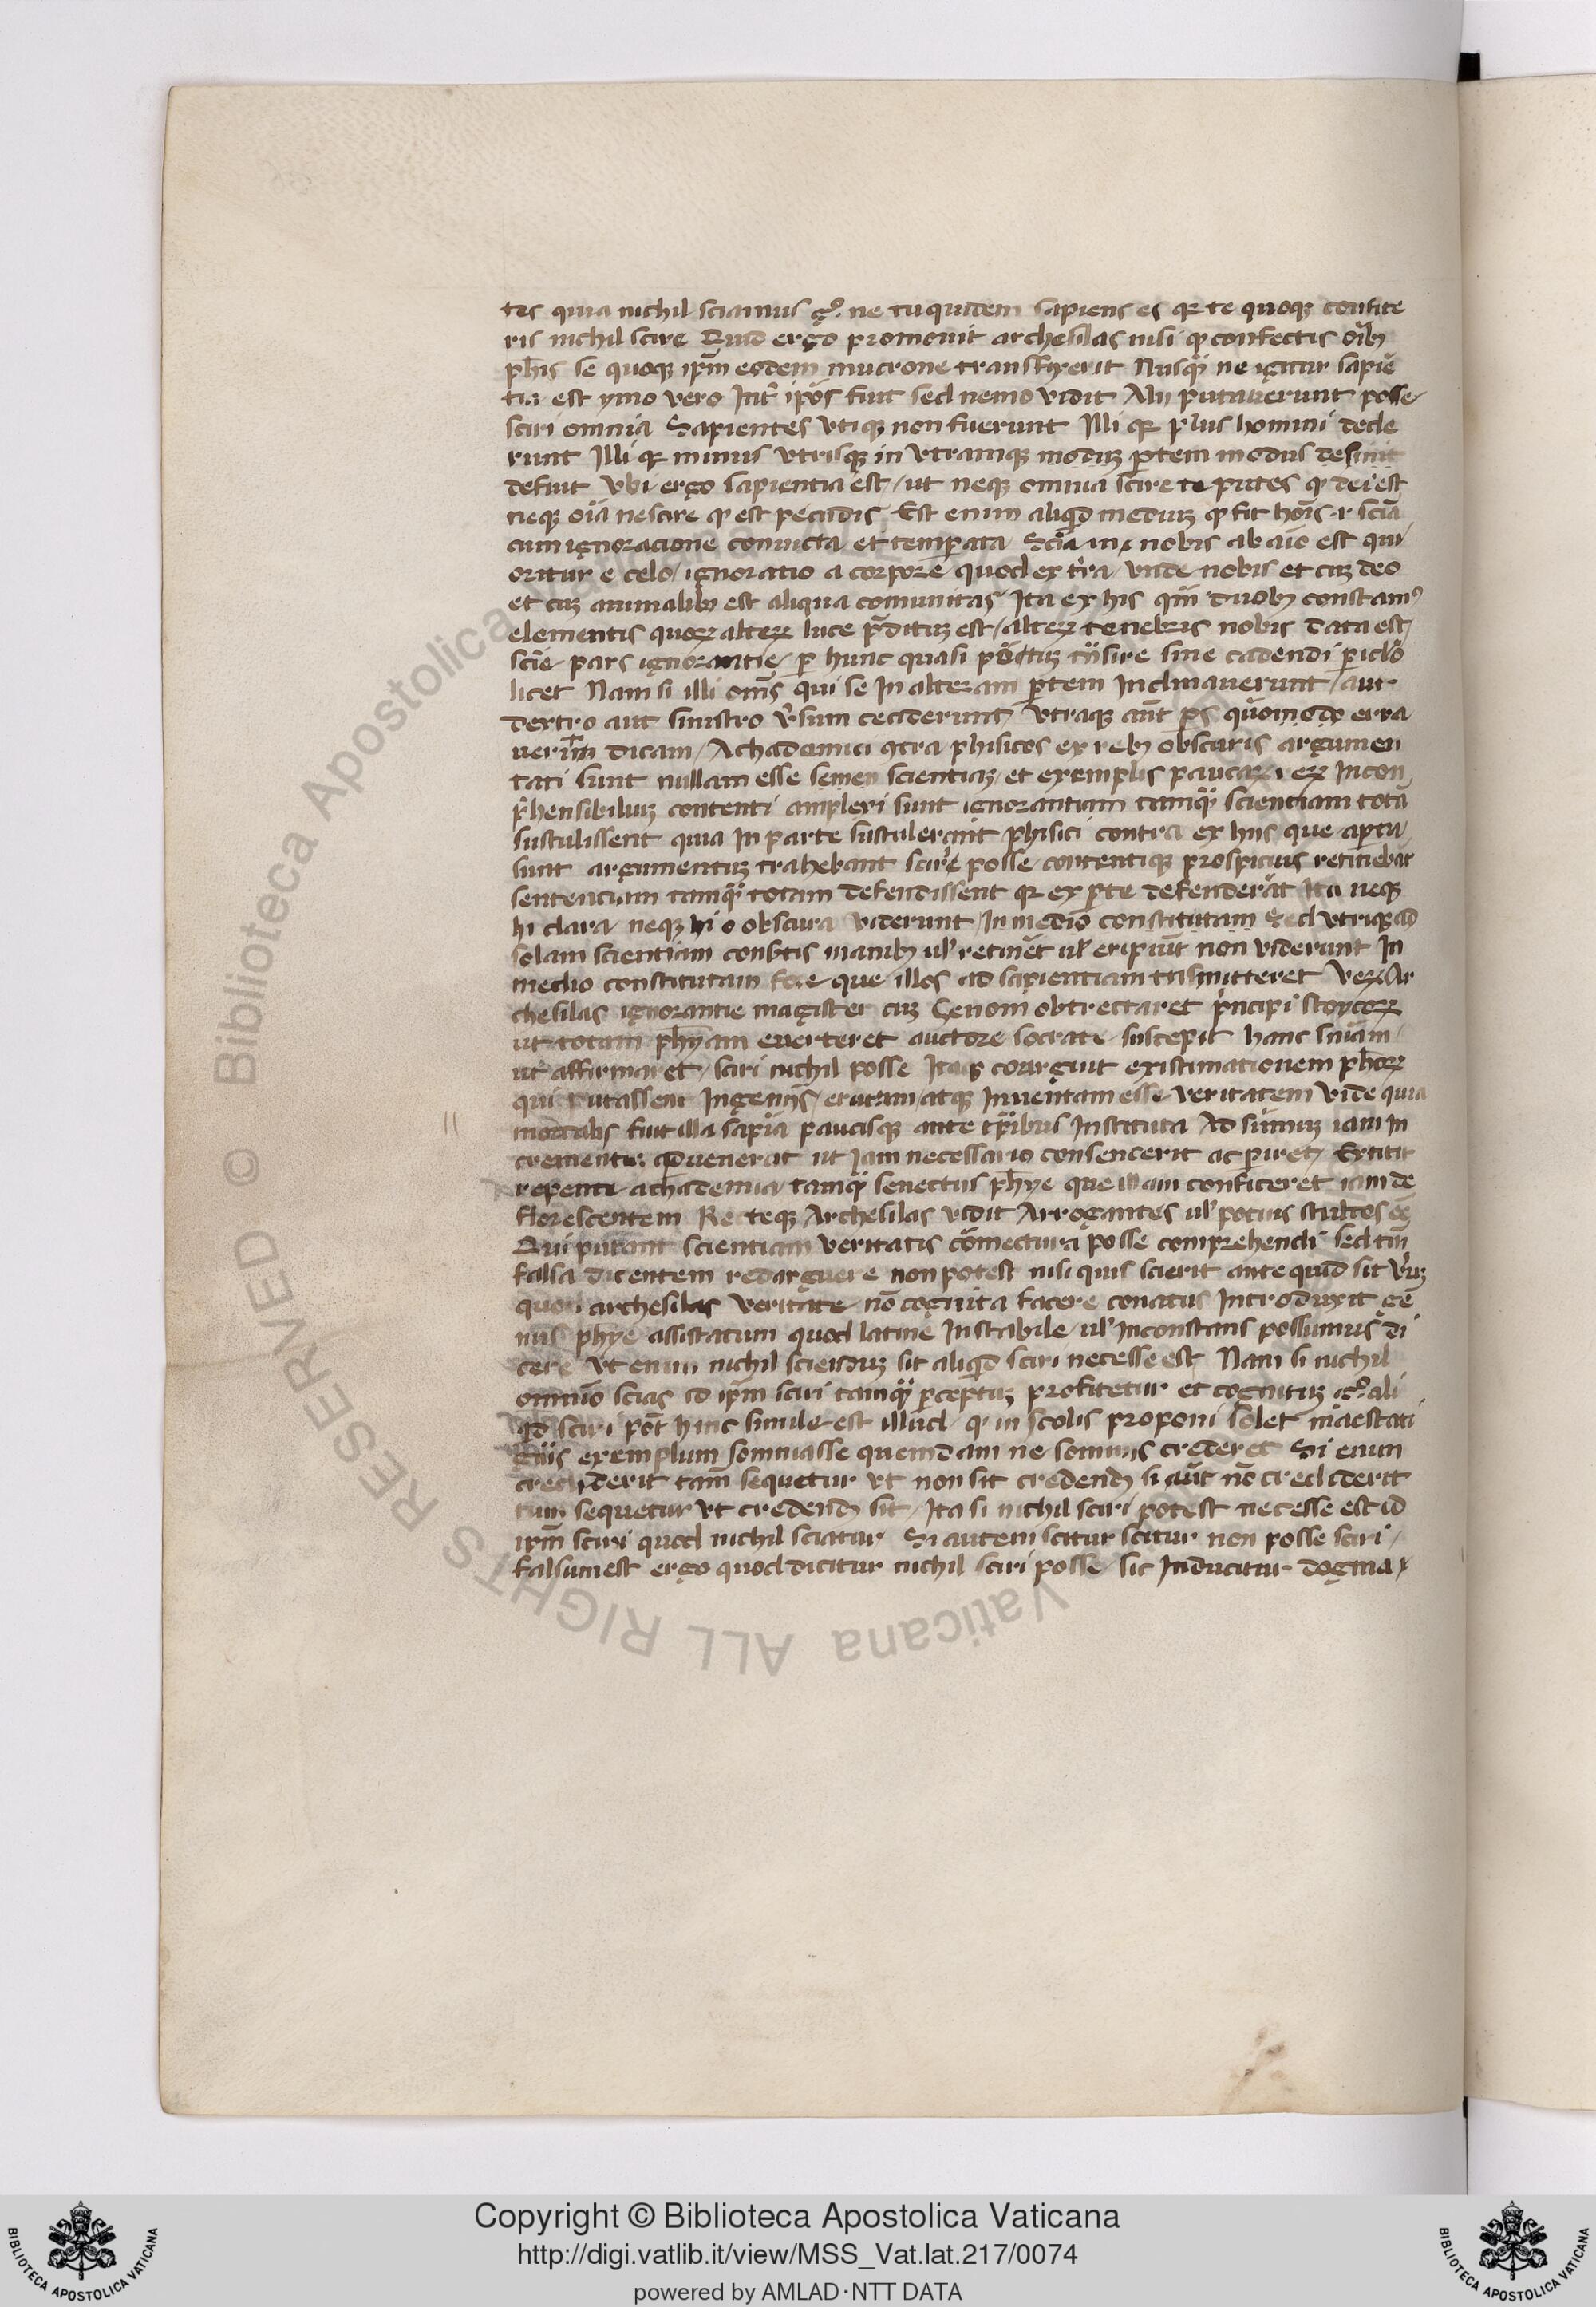 tes quia nichil sciamus gͦ. ne tu quidem sapiens es qꝛ te quoqꝫ confite
ris nichil scire Quid ergo promouit archesilas nisi qꝫ confectis oībꝫ
ph̄is se quoqꝫ ip̄m eodem mucrone transfixerit Nusqͣ ne igitur sapiē
tia est ymo vero Int̉ ip̄os fuit sed nemo vidit Alii putauerunt posse
sciri omnia Sapientes vtiqꝫ non fuerunt Illi qꝛ plus homini dede
runt Illi qꝛ minus vtrisqꝫ in vtramqꝫ moduꝫ ꝑtem modus desinit
defuit vbi ergo sapientia est / ut neqꝫ omnia scire te putes qꝫ dei est
neqꝫ oīa nescire qꝫ est pecudis Est enim aliqͥd mediuꝫ qꝫ sit hoīs .i. sciā
cum ignoracione conuicta et temperata Scīa in nobis ab aīo est qui
oritur e celo / ignoratio a corpore quod ex t̉ra / vnde nobis et cuꝫ deo
et cuꝫ animalibꝫ est aliqua comunitas Ita ex his qm̄ duobꝫ constamꝰ
elementis quoꝝ alteꝝ luce p̄dituꝫ est / alteꝝ tenebris nobis data est
scīe pars ignorantie / ꝑ hunc quasi pōtituꝫ tn̄sire sine cadendi ꝑiclo
licet Nam si illi om̄s qui se In alteram ꝑtem Inclinauerunt / aut
dextro aut sinistro v̉sum ceciderunt vtraqꝫ aūt ꝑs quomodo erra
uerint dicam / Achademici ꝯtra phisicos ex rebꝫ obscuris argumen
tati sunt nullam esse semen scientiaꝫ / et exemplis paucaꝝ reꝝ Incon
p̄hensibiliuꝫ contenti amplexi sunt ignorantiam tamqͣ scientiam totā
sustulissent quia In parte sustulerant phisici contra ex hiis que aꝑta
sunt argumentuꝫ trahebant scire posse / contentiqꝫ prospicuis retinebāt
sentenciam tamqͣ totam defendissent qꝛ ex ꝑte defenderāt Ita neqꝫ
hi clara neqꝫ hi obscura viderunt / In medio constitutam Sed vtriqꝫ ad
solam scientiam consertis manibꝫ ul̉ retinēt ul̉ eripiūt non viderunt In
medio constitutam fore que illos ad sapientiam trāsmitteret Veꝝ Ar
chesilas ignorantie magister cuꝫ Cenoni obtrectaret p̉ncipi stoycoꝝ
ut totam ph̄yam euerteret auctore socrate suscepit hanc sniām
ut affirmaret / sciri nichil posse Itaqꝫ coarguit existimationem ph̄oꝝ
qui putassent Ingeniis / erutam / atqꝫ Inuentam esse veritatem vide quia
mortalis fuit illa sapīa paucisqꝫ ante tꝑibus Instituta Ad sūmuꝫ iam In
crementū aduenerat ut Jam necessario consencerit ac ꝑiret / Extitit
repente achademia tamqͣ senectus ph̄ye que illam conficeret iam de
florescentem Recteqꝫ Archesilas vidit Arrogantes ul̉ pocius stultos eē
Qui putant scientiam veritatis coniectura posse comprehendi sed tn̄
falsa dicentem redarguere non potest nisi quis scierit ante quid sit v̉uꝫ
quod archesilas veritate nō cognita facere conatus Introduxit ge
nus ph̄ye assistatum quod latine Instabile ul̉ Inconstans possumus di
cere vt enim nichil sciendūꝫ sit aliqͥd sciri necesse est Nam si nichil
omnīo scias id ip̄m sciri tamqͣ ꝑceptuꝫ profitetur et cognituꝫ gͦ. ali
qͥd sciri pōt hinc simile est illud / qꝫ in scolis proponi solet
exemplum somniasse quendam ne somniis crederet Si enim
crediderit tam̄ sequetur vt non sit credendꝫ si aūt nō crediderit
tum sequetur vt credendꝫ sit / Ita si nichil sciri potest necesse est id
ip̄m sciri quod nichil sciatur Si autem scitur scitur non posse sciri /
falsum est ergo quod dicitur nichil sciri posse / sic Inducitur dogma
© Biblioteca Apostolica Vaticana ALL RIGHTS RESERVED
Copyright © Biblioteca Apostolica Vaticana
http://digi.vatlib.it/view/MSS_Vat.lat.217/0074
powered by AMLAD·NTT DATA
BIBLIOTECA APOSTOLICA VATICANA
BIBLIOTECA APOSTOLICA VATICANA